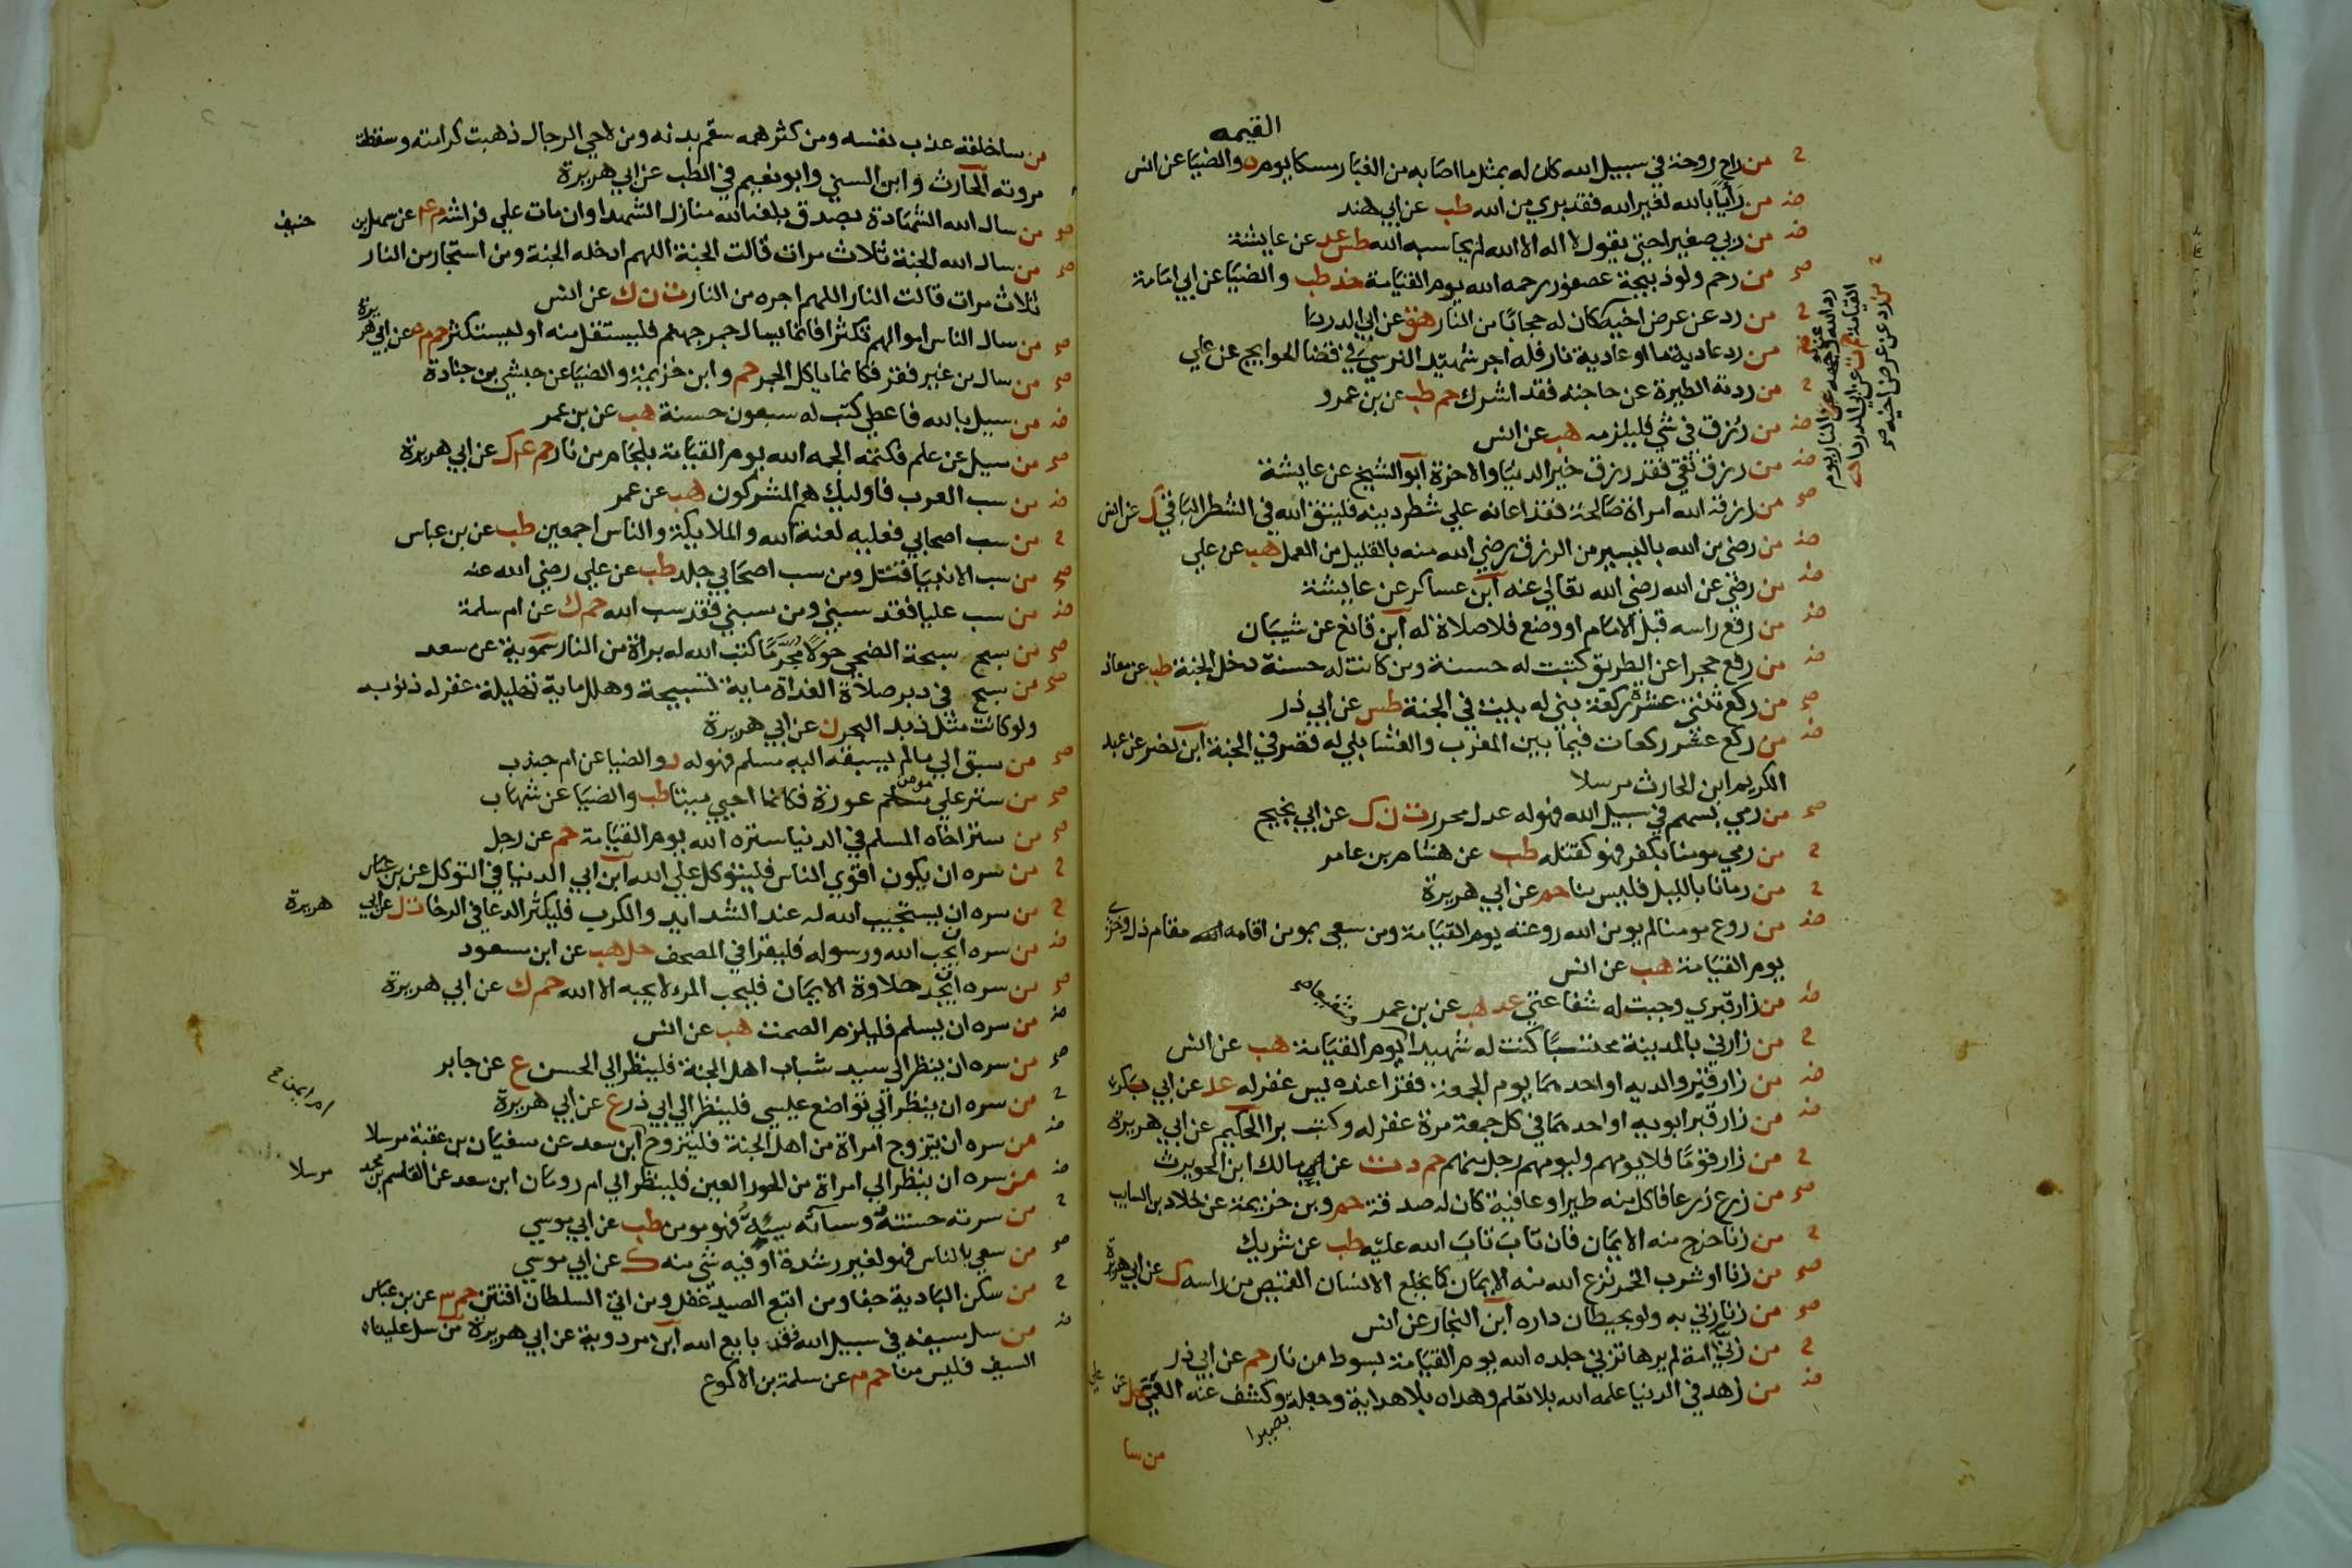 القيمه
ح من راح روحة في سبيل الله كان له بمثل ما اصابه من الغبار مسكا يوم ه والضيا عن انس
ضـ من رايا بالله لغير الله فقد بري من الله طب عن ابي هند
ضـ من ربي صغيرا حتي يقول لا اله الا الله لم يحاسبه الله طس عد عن عايشة
صح من رحم ولو ذبيحة عصفور رحمه الله يوم القيامة خد طب والضيا عن ابي امامة
ح من رد عن عرض اخيه كان له حجابا من النار هق عن ابي الدردا
ح من رد عن عرض اخيه
رد الله عن وجهه النار يوم
القيامة حم ت عن ابي الدردا
من رد عادية ما او عادية نار فله اجر شهيد النرسي في قضا الحوايج عن علي
ح من ردته الطيرة عن حاجته فقد اشرك حم طب عن بن عمرو
ضـ من رزق في شي فليلزمه هب عن انس
ضـ من رزق تقي فقد رزق خير الدنيا والاخرة ابو الشيخ عن عايشة
صح من رزقه الله امراة صالحة فقد اعانه علي شطر دينه فليتق الله في الشطر الباقي ك عن انس
ضـ من رضي من الله باليسير من الرزق رضي الله منه بالقليل من العمل هب عن علي
ضـ من رضي عن الله رضي الله تعالي عنه ابن عساكر عن عايشة
ضـ من رفع راسه قبل الامام او وضع فلا صلاة له ابن قانع عن شيبان
ضـ من رفع حجرا عن الطريق كتبت له حسنة ومن كانت له حسنة دخل الجنة طب عن معاذ
صح من ركع ثنتي عشرة ركعة بني له بيت في الجنة طس عن ابي ذر
ضـ من ركع عشر ركعات فيما بين المغرب والعشا بني له قصر في الجنة ابن نصر عن عبد
الكريم ابن الحارث مرسلا
صح من رمي بسهم في سبيل الله فهو له عدل محرر ت ن ك عن ابي نجيح
ح من رمي مومنا بكفر فهو كقتله طب عن هشام بن عامر
ح من رمانا بالليل فليس منا حم عن ابي هريرة
ضـ من روع مومنا لم يومن الله روعته يوم القيامة ومن سعي بمومن اقامه الله مقام ذل وخزي
يوم القيامة هب عن انس
ضـ من زار قبري وجبت له شفاعتي عد هب عن بن عمر
ح من زارني بالمدينة محتسبا كنت له شهيدا يوم القيامة هب عن انس
ضـ من زار قبر والديه او احدهما يوم الجمعة فقرا عنده يس غفر له عد عن ابي بكر
ضـ من زار قبر ابويه او احدهما في كل جمعة مرة غفر له وكتب برا الحكيم عن ابي هريرة
ح من زار قوما فلا يومهم وليومهم رجل منهم حم د ت عن مالك ابن الحويرث
صح من زرع زرعا فاكل منه طير او عافية كان له صدقة حم وبن خزيمة عن خلاد بن السايب
ح من زنا خرج منه الايمان فان تاب تاب الله عليه طب عن شريك
صح من زنا او شرب الخمر نزع الله منه الايمان كما يخلع الانسان القميص من راسه ك عن ابي هريرة
صح من زنا زني به ولو بحيطان داره ابن النجار عن انس
ح من زني امة لم يرها تزني جلده الله يوم القيامة بسوط من نار حم عن ابي ذر
ضـ من زهد في الدنيا علمه الله بلا تعلم وهداه بلا هداية وجعله وكشف عنه العمي حل عن علي
بصيرا
من سا
من سا خلقه عذب نفسه ومن كثر همه سقم بدنه ومن لاحي الرجال ذهبت كرامته وسقطت
مروته الحارث وابن السني وابو نعيم في الطب عن ابي هريرة
صح من سال الله الشهادة بصدق بلغه الله منازل الشهدا وان مات علي فراشه م عم عن سهل بن حنيف
صح من سال الله الجنة ثلاث مرات قالت الجنة اللهم ادخله الجنة ومن استجار من النار
ثلاث مرات قالت النار اللهم اجره من النار ت ن ك عن انس
صح من سال الناس اموالهم تكثرا فانما يسال جمر جهنم فليستقل منه او ليستكثر حم م ه عن ابي هريرة
صح من سال من غير فقر فكانما ياكل الجمر حم وابن خزيمة والضيا عن حبشي بن جنادة
ضـ من سيل بالله فاعطي كتب له سبعون حسنة هب عن بن عمر
صح من سيل عن علم فكتمه الجمه الله يوم القيامة بلجام من نار حم عم ك عن ابي هريرة
ضـ من سب العرب فاوليك هم المشركون هب عن عمر
ح من سب اصحابي فعليه لعنة الله والملايكة والناس اجمعين طب عن بن عباس
صح من سب الانبيا قتل ومن سب اصحابي جلد طب عن علي رضي الله عنه
ضـ من سب عليا فقد سبني ومن سبني فقد سب الله حم ك عن ام سلمة
صح من سبح سبحة الضحي حولا مجرما كتب الله له براة من النار سموية عن سعد
صح من سبح في دبر صلاة الغداة ماية تسبيحة وهلل ماية تهليلة غفر له ذنوبه
ولو كانت مثل زبد البحر ن عن ابي هريرة
صح من سبق الي ما لم يسبقه اليه مسلم فهو له د والضيا عن ام جندب
صح من ستر علي مومن عورة فكانما احيي ميتا طب والضيا عن شهاب
صح من ستر اخاه المسلم في الدنيا ستره الله يوم القيامة حم عن رجل
ح من سره ان يكون اقوي الناس فليتوكل علي الله ابن ابي الدنيا في التوكل عن بن عباس
ح من سره ان يستجيب الله له عند الشدايد والكرب فليكثر الدعا في الرخا ت ك عن ابي هريرة
ضـ من سره ان يحب الله ورسوله فليقرا في المصحف حل هب عن ابن مسعود
صح من سره ان يجد حلاوة الايمان فليحب المرء لا يحبه الا لله حم ك عن ابي هريرة
ضـ من سره ان يسلم فليلزم الصمت هب عن انس
صح من سره ان ينظر الي سيد شباب اهل الجنة فلينظر الي الحسن ع عن جابر
ح من سره ان ينظر الي تواضع عيسي فلينظر الي ابي ذر ع عن ابي هريرة
ام ايمن صح
ضـ من سره ان يتزوج امراة من اهل الجنة فليتزوج ابن سعد عن سفيان بن عقبة مرسلا
ضـ من سره ان ينظر الي امراة من الحور العين فلينظر الي ام رومان ابن سعد عن القاسم بن محمد مرسلا
ح من سرته حسنته وساته سييته فهو مومن طب عن ابي موسي
صح من سعي بالناس فهو لغير رشدة او فيه شي منه ك عن ابي موسي
ح من سكن البادية جفا ومن اتبع الصيد غفل ومن اتي السلطان افتتن حم ٣ عن بن عباس
ضـ من سل سيفه في سبيل الله فقد بايع الله ابن مردوية عن ابي هريرة من سل علينا
السيف فليس منا حم م عن سلمة بن الاكوع